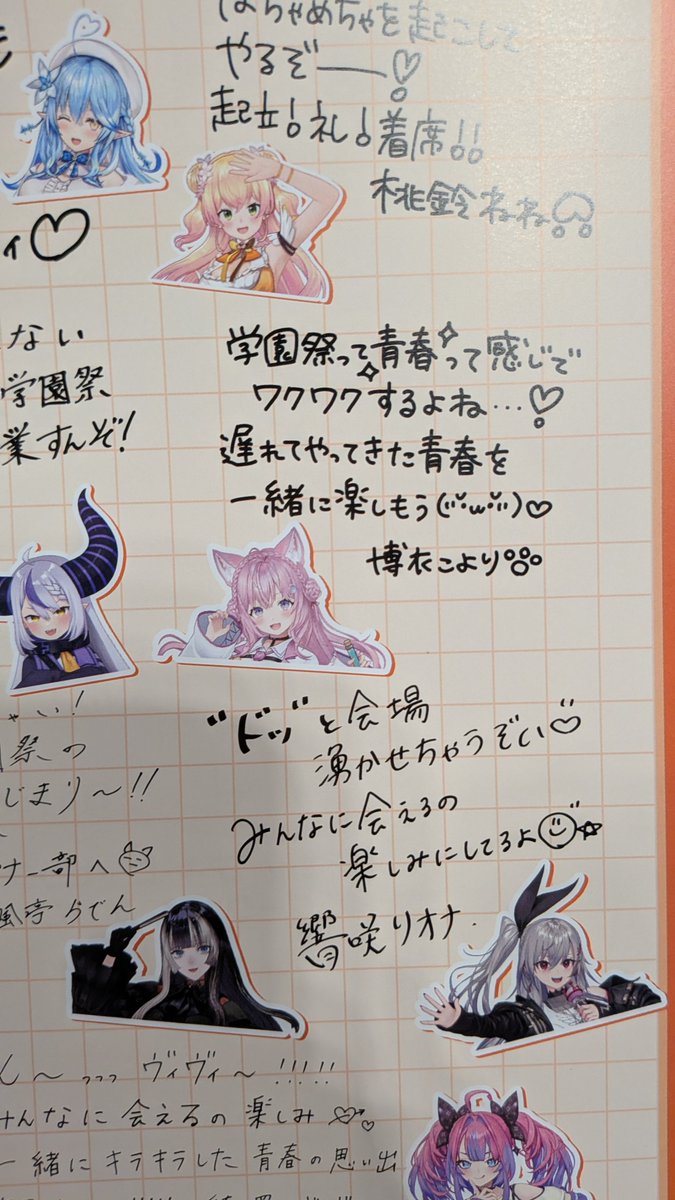 はちゃめちゃを起こして
やるぞー♡
起立!礼!着席!!
桃鈴ねね
ィ♡
ない
学園祭
業すんぞ!
学園祭って青春って感じで
ワクワクするよね…♡
遅れてやってきた青春を
一緒に楽しもう(*'ω'*)♡
博衣こより
ゃい!
祭の
じまり〜!!
ナー部へ
風亭らでん
"ドッ"と会場
湧かせちゃうぞい♡
みんなに会えるの
楽しみにしてるよ☺☆
響咲リオナ.
ん〜っっっヴィヴィ〜!!!!!
みんなに会えるの楽しみ
一緒にキラキラした青春の思い出